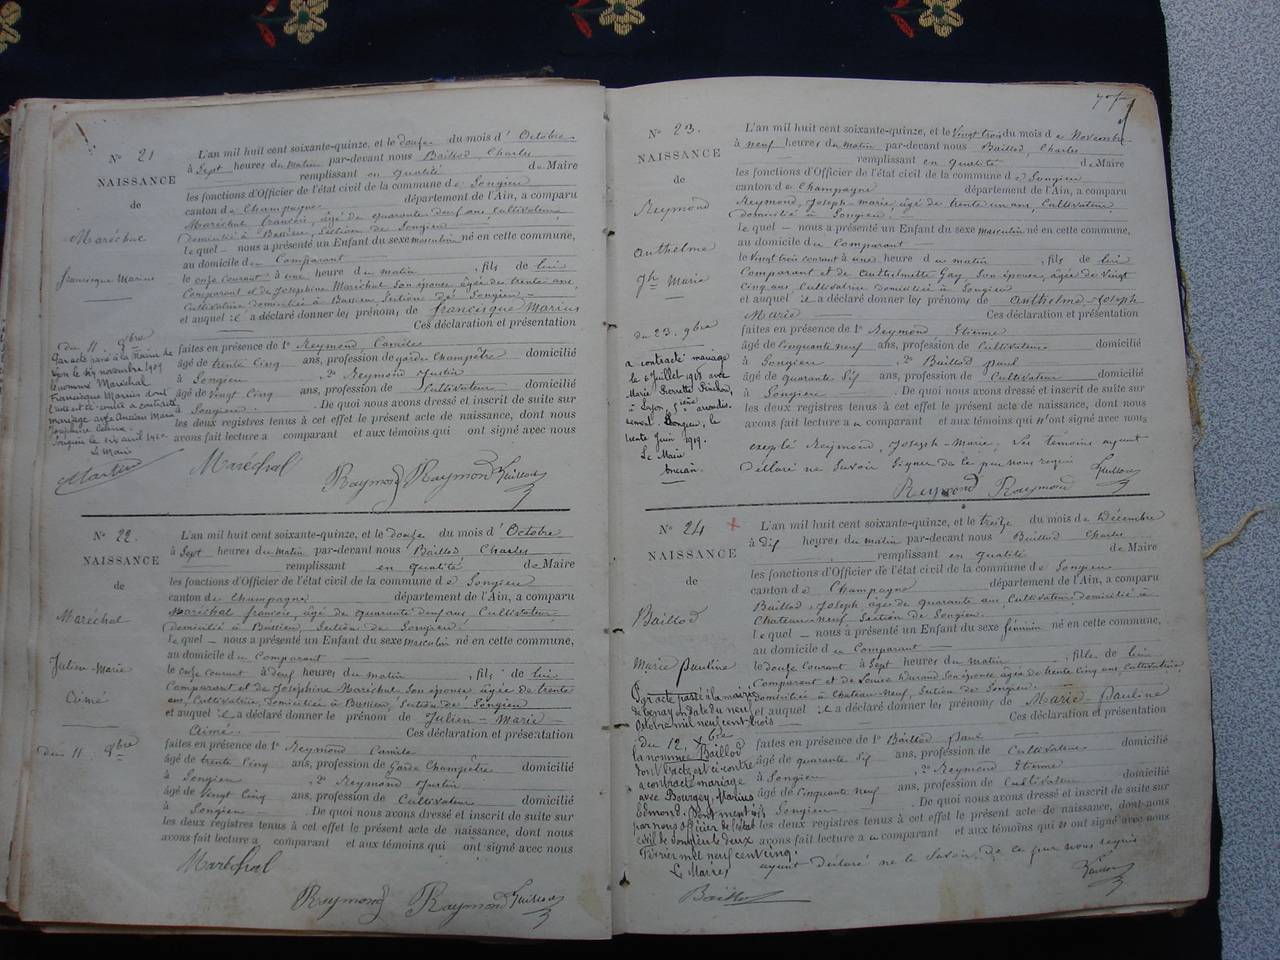 N° 21
NAISSANCE
de
Maréchal
francisque Marius
du 11 8bre
Par acte passé à la Mairie de
Lyon le dix novembre 1909
le nommé Maréchal
Francisque Marius dont
l'acte est ci-contre a contracté
mariage avec
Josephine
Songieu le dix avril 1910
Le Maire
L'an mil huit cent soixante-quinze, et le douze du mois d'Octobre
à Sept heures du Matin par-devant nous Baillod, Charles
remplissant en qualité de Maire
les fonctions d'Officier de l'état civil de la commune de Songieu
canton de Champagne département de l'Ain, a comparu
Maréchal francois, âgé de quarante deuf ans Cultivateur
domicilié à Bassieu, Section de Songieu
lequel nous a présenté un Enfant du sexe masculin né en cette commune,
au domicile du Comparant
le onze courant à une heure du matin, fils de lui
Comparant et de Josephine Maréchal Son épouse âgée de trente ans,
Cultivatrice domiciliée à Bassieu Section de Songieu
et auquel il a déclaré donner les prénoms de francisque Marius
Ces déclaration et présentation
faites en présence de 1° Reymond Camile
âgé de trente Cinq ans, profession de garde Champêtre domicilié
à Songieu, 2° Reymond Justin
âgé de Vingt Cinq ans, profession de Cultivateur domicilié
à Songieu. De quoi nous avons dressé et inscrit de suite sur
les deux registres tenus à cet effet le présent acte de naissance, dont nous
avons fait lecture a comparant et aux témoins qui ont signé avec nous
Maréchal
Raymond Raymond
N° 22.
NAISSANCE
de
Maréchal
Julien-Marie
Aimé
du 11 8bre
L'an mil huit cent soixante-quinze, et le douze du mois d'Octobre
à Sept heures du Matin par-devant nous Baillod, Charles
remplissant en qualité de Maire
les fonctions d'Officier de l'état civil de la commune de Songieu
canton de Champagne département de l'Ain, a comparu
Maréchal francois, âgé de quarante deuf ans Cultivateur
Domicilié à Bassieu, Section de Songieu
lequel nous a présenté un Enfant du sexe masculin né en cette commune,
au domicile du Comparant
le onze courant à deuf heures du matin, fils de lui
Comparant et de Joséphine Maréchal Son épouse âgée de trente
ans, Cultivatrice, Domiciliée à Bassieu, Section de Songieu
et auquel il a déclaré donner le prénom de Julien-Marie
Aimé Ces déclaration et présentation
faites en présence de 1° Reymond Camile
âgé de trente Cinq ans, profession de Garde Champêtre domicilié
à Songieu, 2° Reymond Justin
âgé de Vingt Cinq ans, profession de Cultivateur domicilié
à Songieu. De quoi nous avons dressé et inscrit de suite sur
les deux registres tenus à cet effet le présent acte de naissance, dont nous
avons fait lecture a comparant et aux témoins qui ont signé avec nous
Maréchal
Raymond Raymond
N° 23.
NAISSANCE
de
Reymond
Anthelme
Jh Marie
du 23. 9bre
a contracté mariage
le 6 Juillet 1918 avec
Marie Pierrette
à Lyon, 5ème arrondis-
sement. Songieu, le
trente Juin 1919.
Le Maire
L'an mil huit cent soixante-quinze, et le Vingt trois du mois de Novembre
à neuf heures du Matin par-devant nous Baillod, Charles
remplissant en qualité de Maire
les fonctions d'Officier de l'état civil de la commune de Songieu
canton de Champagne département de l'Ain, a comparu
Reymond, Joseph-Marie, âgé de trente un ans, Cultivateur
domicilié à Songieu
lequel nous a présenté un Enfant du sexe masculin né en cette commune,
au domicile du Comparant
le Vingt trois courant à une heure du matin, fils de lui
Comparant et de Anthelmette Gay, Son épouse, âgée de Vingt
Cinq ans, Cultivatrice Domiciliée à Songieu
et auquel il a déclaré donner les prénoms de Anthelme-Joseph
Marie Ces déclaration et présentation
faites en présence de 1° Reymond Etienne
âgé de Cinquante neuf ans, profession de Cultivateur domicilié
à Songieu, 2° Baillod paul
âgé de quarante Sif ans, profession de Cultivateur domicilié
à Songieu. De quoi nous avons dressé et inscrit de suite sur
les deux registres tenus à cet effet le présent acte de naissance, dont nous
avons fait lecture au comparant et aux témoins qui n'ont signé avec nous
excepté Reymond, Joseph-Marie, les témoins ayant
Déclaré ne Savoir Signer de ce par nous requis
Reymond Raymond
N° 24
NAISSANCE
de
Baillod
Marie Pauline
Par acte passé à la mairie
en date du neuf
Octobre mil neuf cent trois
Du 12. Xbre
la nommée Baillod
dont l'acte est ci-contre
a contracté mariage
avec Bourgey, Marius
Edmond. Dont mention
par nous Officier de l'état
civil de Songieu le deux
Février mil neuf cent cinq.
Le Maire
Baillod
L'an mil huit cent soixante-quinze, et le treize du mois de Décembre
à dif heures du matin par-devant nous Baillod Charles
remplissant en qualité de Maire
les fonctions d'Officier de l'état civil de la commune de Songieu
canton de Champagne département de l'Ain, a comparu
Baillod, Joseph, âgé de quarante ans, Cultivateur, domicilié à
Chateau-neuf Section de Songieu
lequel nous a présenté un Enfant du sexe féminin né en cette commune,
au domicile du Comparant
le douze courant à Sept heures du matin, fille de lui
Comparant et de Louise Durand Son épouse âgée de trente Cinq ans, Cultivatrice
domiciliée à Chateau-neuf, Section de Songieu
et auquel il a déclaré donner les prénoms de Marie-Pauline
Ces déclaration et présentation
faites en présence de 1° Baillod paul
âgé de quarante Sif ans, profession de Cultivateur domicilié
à Songieu, 2° Reymond Etienne
âgé de Cinquante neuf ans, profession de Cultivateur domicilié
à Songieu. De quoi nous avons dressé et inscrit de suite sur
les deux registres tenus à cet effet le présent acte de naissance, dont nous
avons fait lecture au comparant et aux témoins qui ont signé avec nous
ayant déclaré ne le Savoir de ce par nous requis